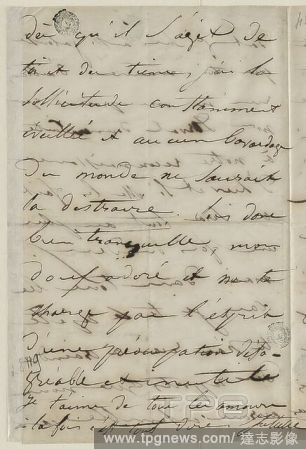 dès qu'il s'agit de
toi et des tiens, j'ai la
sollicitude constamment
éveillée et aucun bavardage
du monde ne saurait
la distraire. Sois donc
bien tranquille mon
doux adoré et ne te
charge pas l'esprit
d'une préoccupation désa-
gréable et inutile
Je t'aime de tout
la fois
www.tpgnews.com / 達志影像